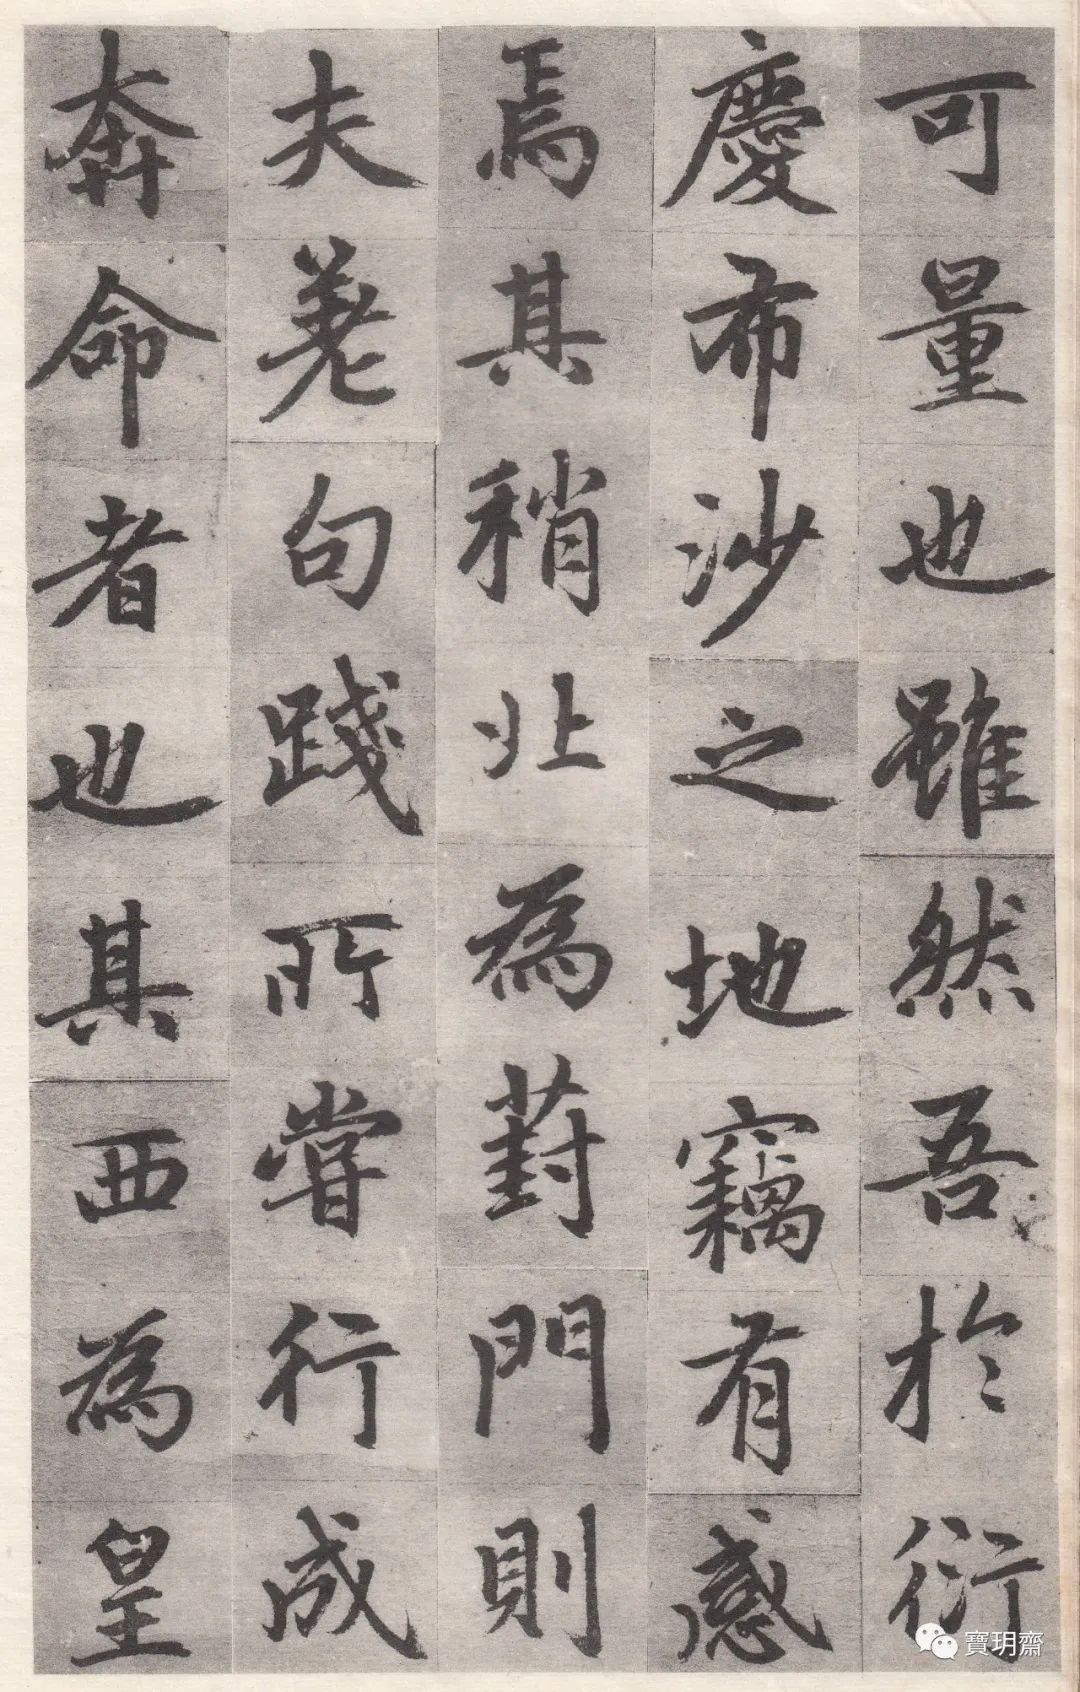 可量也雖然吾於衍
慶布沙之地竊有感
焉其稍北為葑門則
夫差句踐所嘗行成
奔命者也其西為皇
寶玥齋